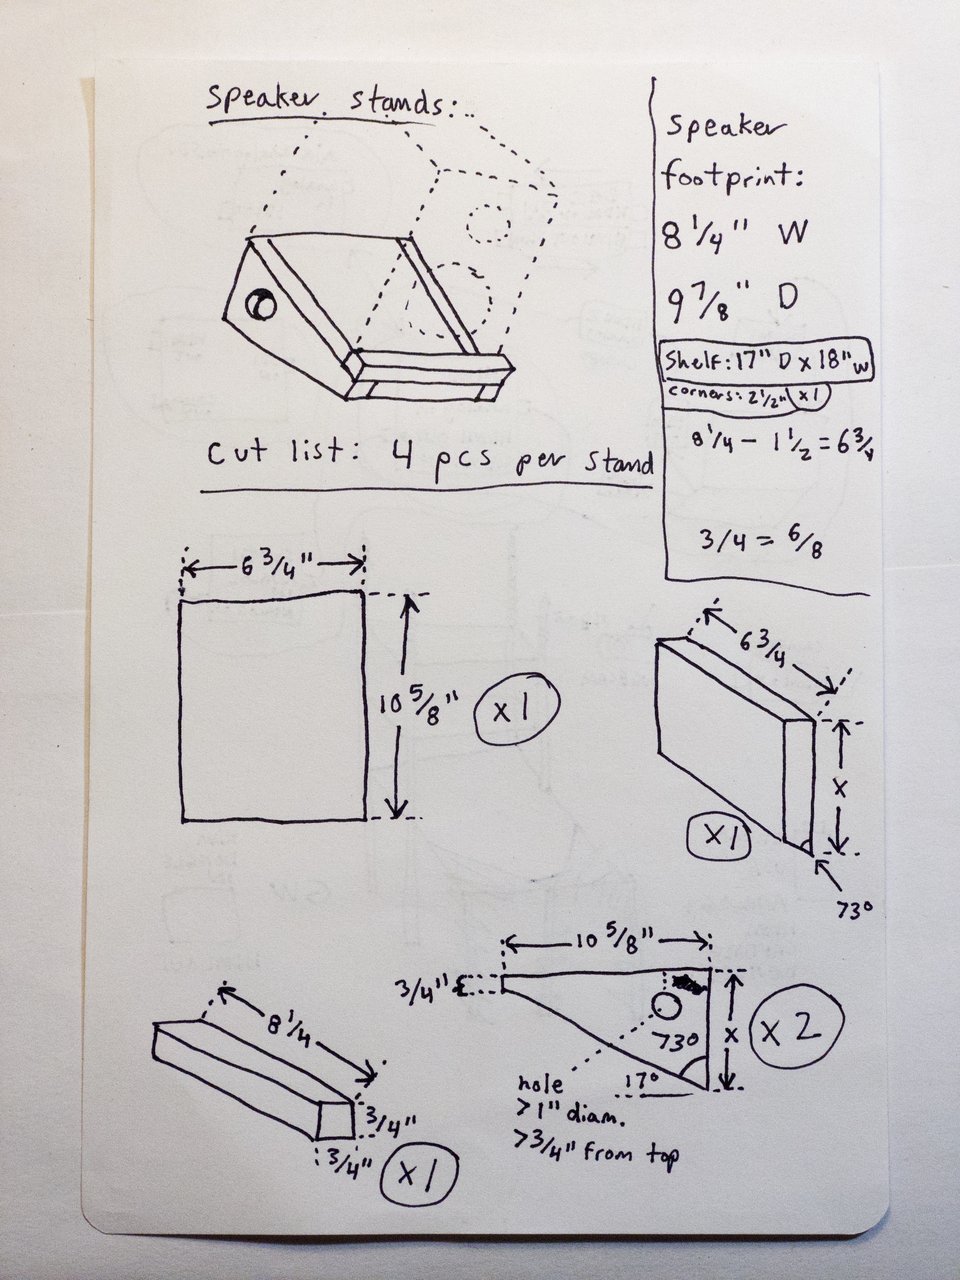 speaker stands:
speaker
footprint:
8 1/4" W
9 7/8" D
Shelf: 17" D x 18" W
corners: 2 1/2" x1
8 1/4 - 1 1/2 = 6 3/4
3/4 = 6/8
cut list: 4 pcs per stand
6 3/4"
10 5/8"
x1
6 3/4
x
x1
73°
10 5/8"
3/4"
x
x2
73°
17°
hole
>1" diam.
>3/4" from top
8 1/4
3/4"
3/4"
x1